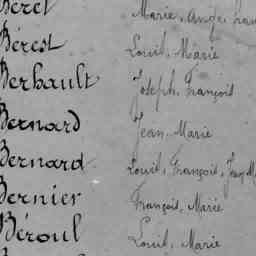 Béret Marie, Ange
Bérest Louis, Marie
Berhault Joseph, François
Bernard Jean, Marie
Bernard Louis, François, Jean
Bernier François, Marie
Béroul Louis, Marie